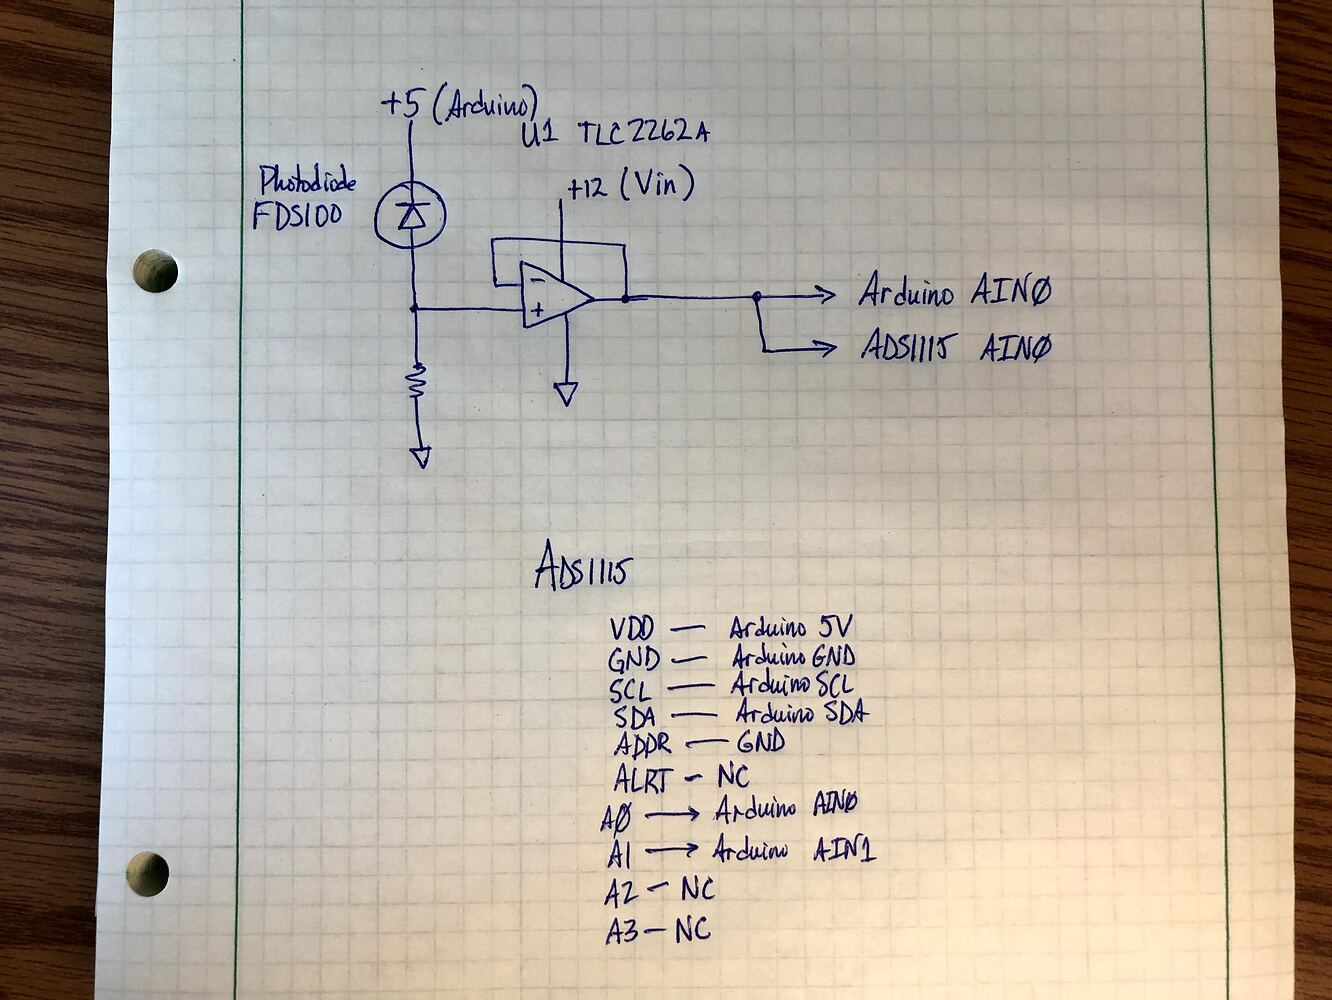 +5 (Arduino)
U1 TLC2262A
Photodiode
FDS100
+12 (Vin)
-
+
Arduino AIN0
ADS1115 AIN0
ADS1115
VDD — Arduino 5V
GND — Arduino GND
SCL — Arduino SCL
SDA — Arduino SDA
ADDR — GND
ALRT - NC
A0 → Arduino AIN0
A1 → Arduino AIN1
A2 - NC
A3 - NC